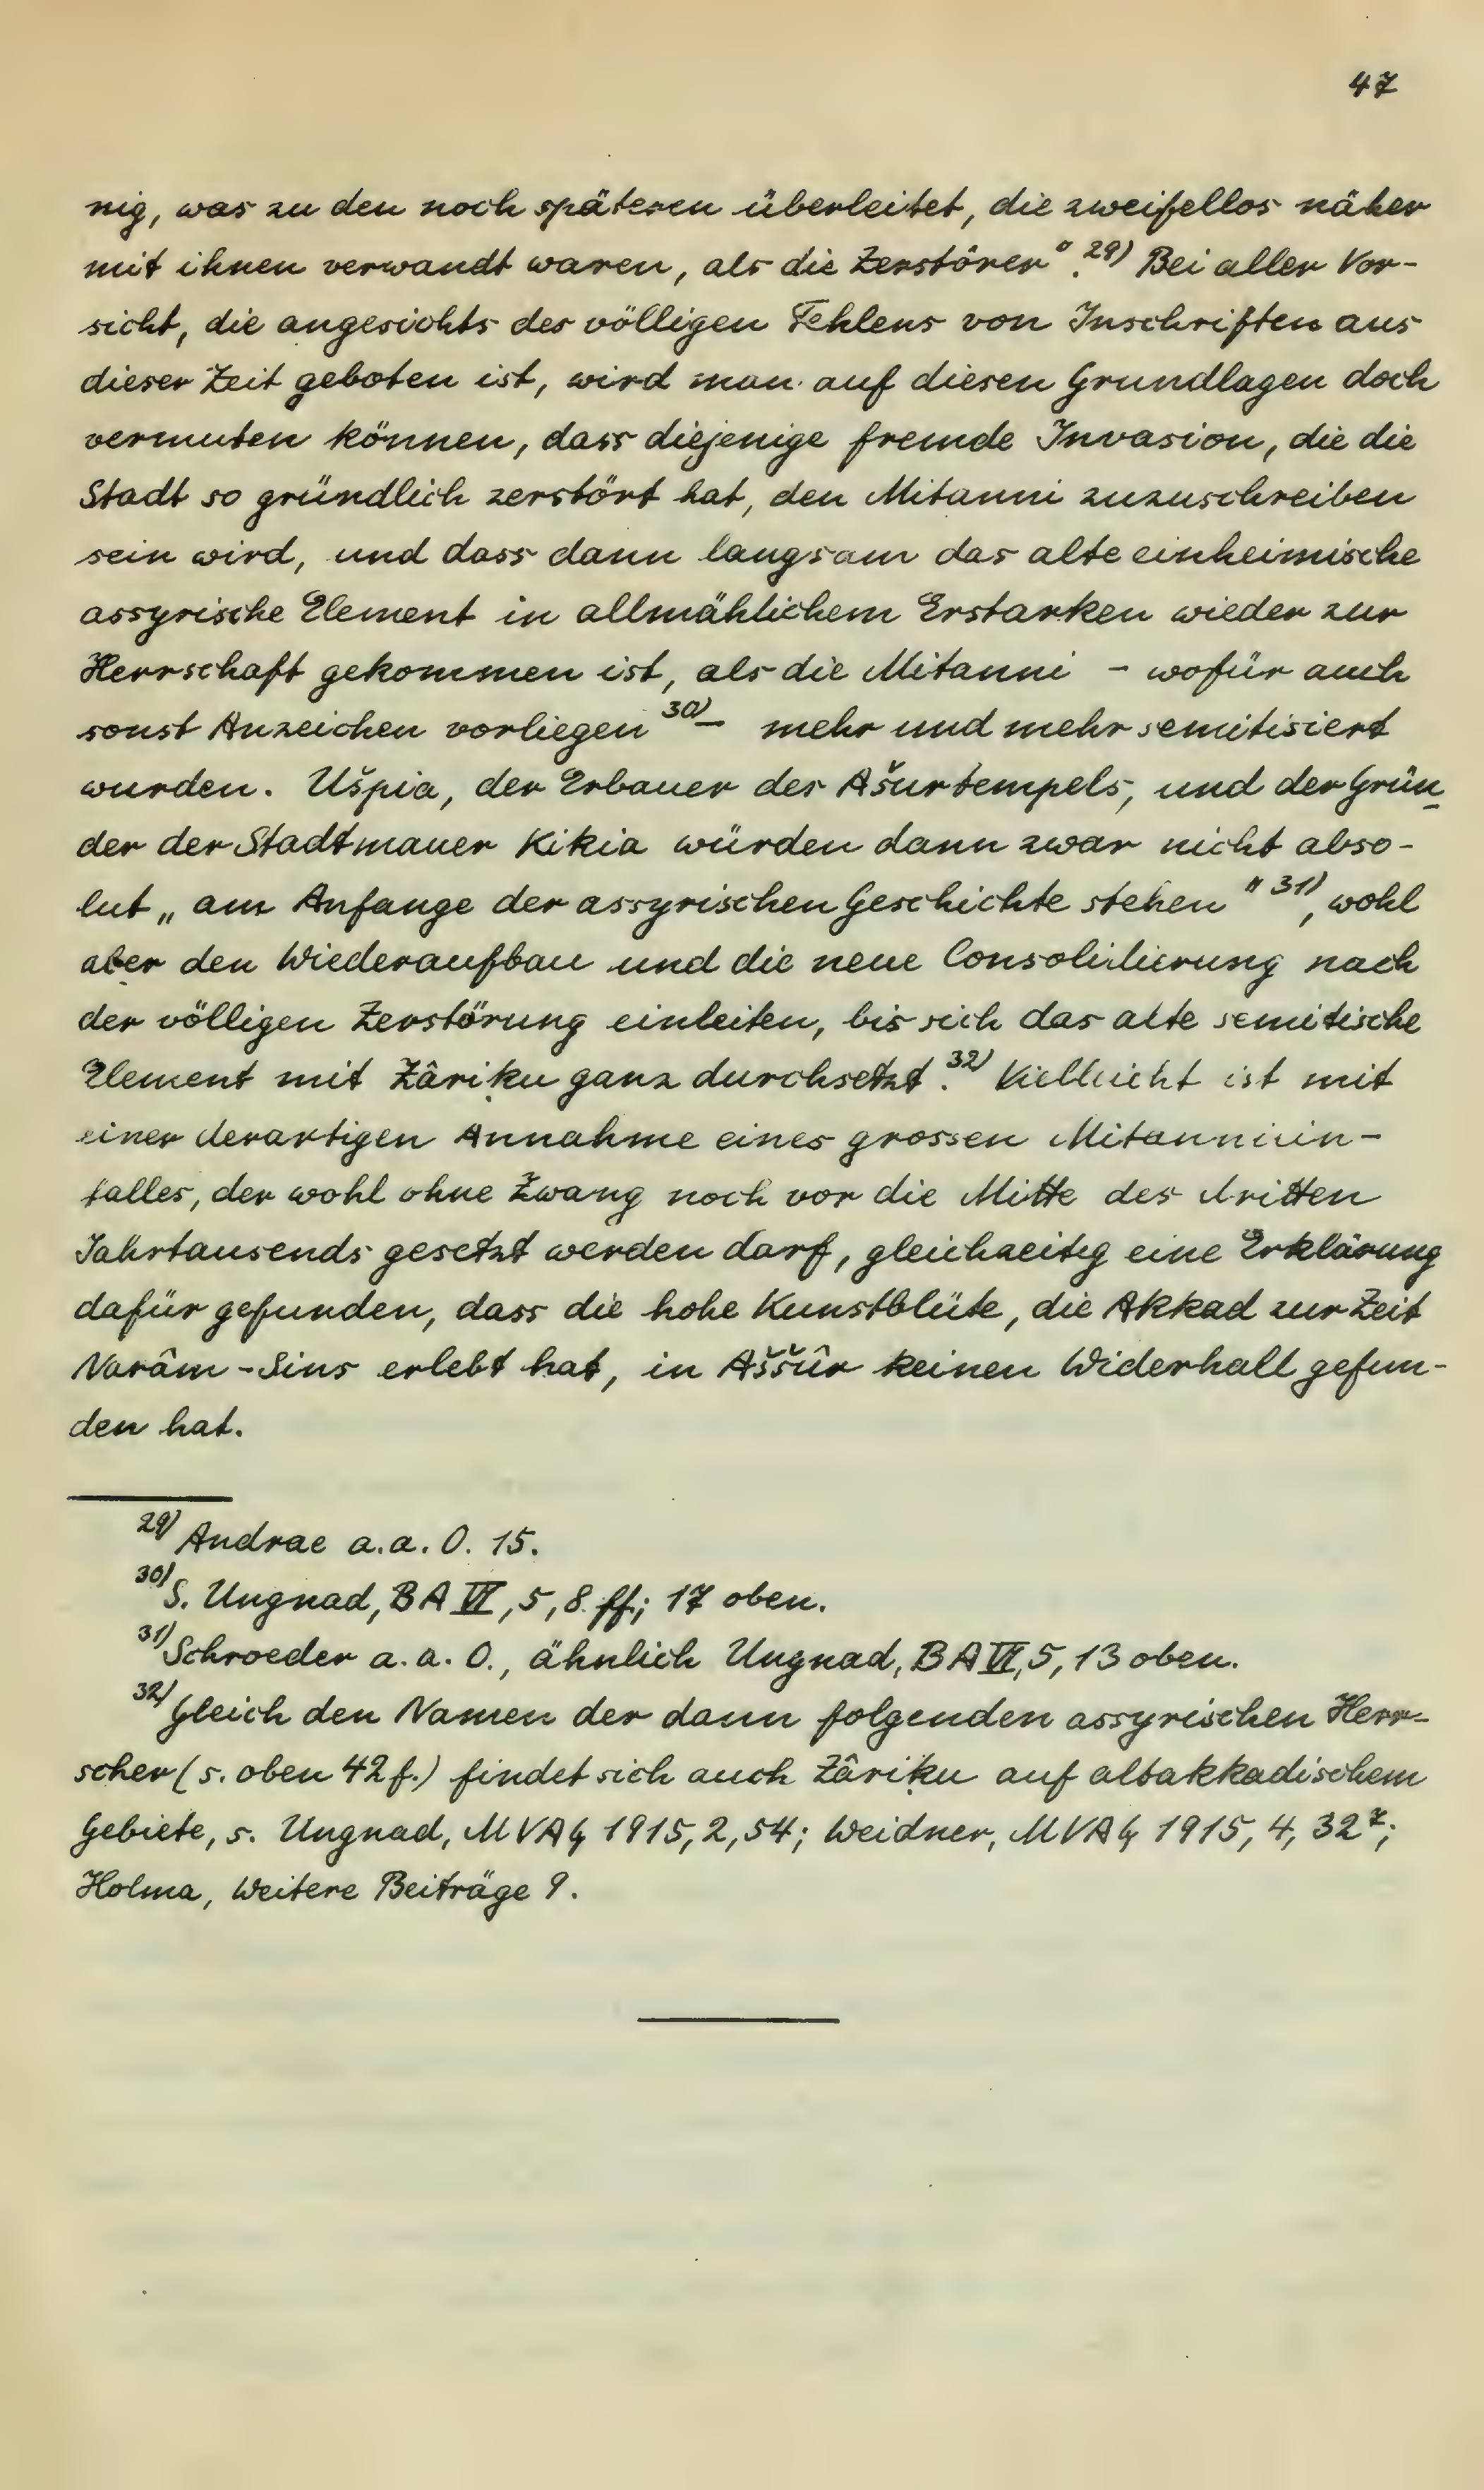 47
nig, was zu den noch späteren überleitet, die zweifellos näher
mit ihnen verwandt waren, als die Zerstörer".²⁹⁾ Bei aller Vor-
sicht, die angesichts des völligen Fehlens von Inschriften aus
dieser Zeit geboten ist, wird man auf diesen Grundlagen doch
vermuten können, dass diejenige fremde Invasion, die die
Stadt so gründlich zerstört hat, den Mitanni zuzuschreiben
sein wird, und dass dann langsam das alte einheimische
assyrische Element in allmählichem Erstarken wieder zur
Herrschaft gekommen ist, als die Mitanni - wofür auch
sonst Anzeichen vorliegen³⁰⁾ - mehr und mehr semitisiert
wurden. Ušpia, der Erbauer des Ašurtempels, und der Grün-
der der Stadtmauer Kikia würden dann zwar nicht abso-
lut „am Anfange der assyrischen Geschichte stehen"³¹⁾, wohl
aber den Wiederaufbau und die neue Consolidierung nach
der völligen Zerstörung einleiten, bis sich das alte semitische
Element mit Zâriḳu ganz durchsetzt.³²⁾ Vielleicht ist mit
einer derartigen Annahme eines grossen Mitanniein-
falles, der wohl ohne Zwang noch vor die Mitte des dritten
Jahrtausends gesetzt werden darf, gleichzeitig eine Erklärung
dafür gefunden, dass die hohe Kunstblüte, die Akkad zur Zeit
Narâm-Sins erlebt hat, in Aššûr keinen Widerhall gefun-
den hat.
²⁹⁾ Andrae a.a.O. 15.
³⁰⁾ S. Ungnad, BA VI, 5, 8 ff; 17 oben.
³¹⁾ Schroeder a.a.O., ähnlich Ungnad, BA VI, 5, 13 oben.
³²⁾ Gleich den Namen der dann folgenden assyrischen Herr-
scher (s. oben 42 f.) findet sich auch Zâriḳu auf altakkadischem
Gebiete, s. Ungnad, MVAG 1915, 2, 54; Weidner, MVAG 1915, 4, 32⁷;
Holma, Weitere Beiträge 9.